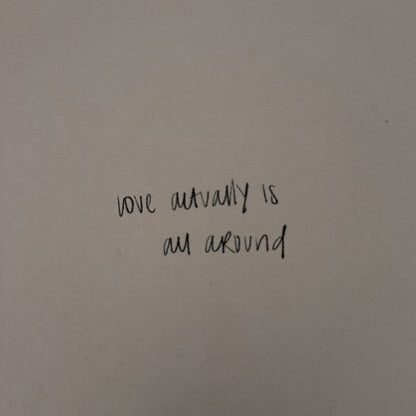 love actually is
all around